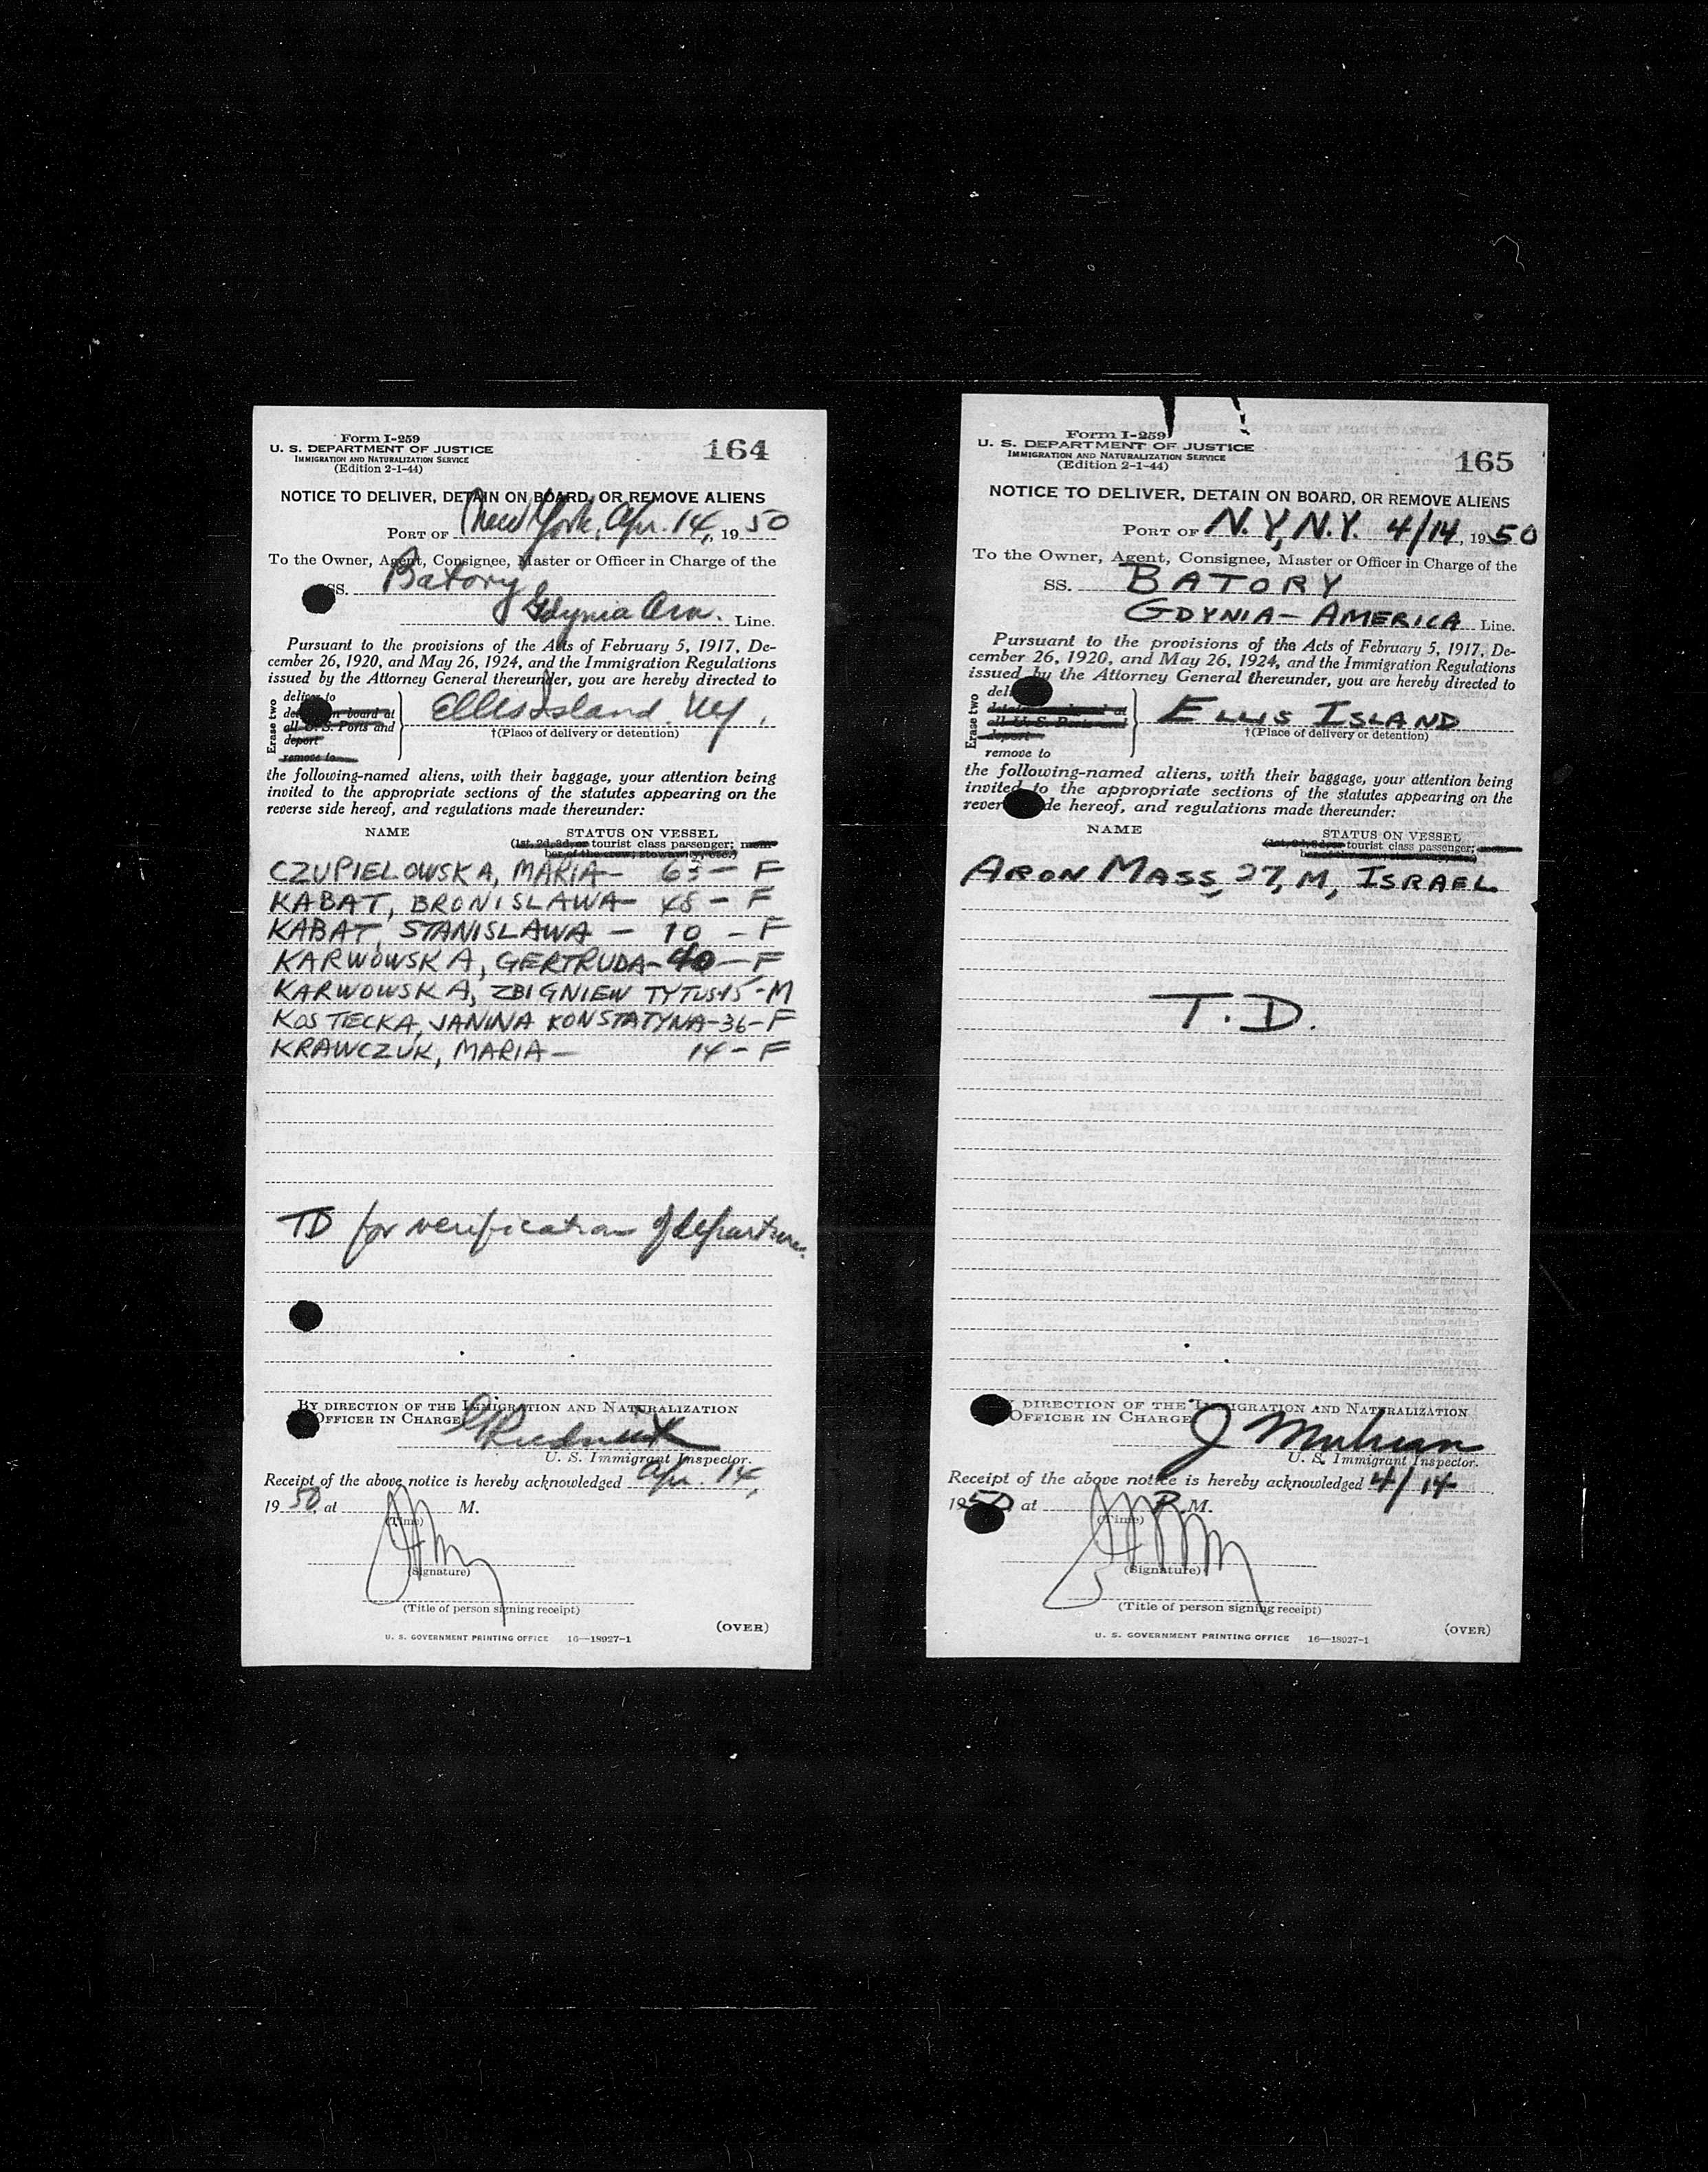 Form I-259
U. S. DEPARTMENT OF JUSTICE
IMMIGRATION AND NATURALIZATION SERVICE
(Edition 2-1-44)
164
NOTICE TO DELIVER, DETAIN ON BOARD, OR REMOVE ALIENS
PORT OF New York, Apr. 14, 1950
To the Owner, Agent, Consignee, Master or Officer in Charge of the
SS. Batory
Gdynia Am. Line.
Pursuant to the provisions of the Acts of February 5, 1917, De-
cember 26, 1920, and May 26, 1924, and the Immigration Regulations
issued by the Attorney General thereunder, you are hereby directed to
Erase two
deliver to
on board at
all U. S. Ports and
deport
remove to
Ellis Island. NY.
†(Place of delivery or detention)
the following-named aliens, with their baggage, your attention being
invited to the appropriate sections of the statutes appearing on the
reverse side hereof, and regulations made thereunder:
NAME STATUS ON VESSEL
(1st, 2d, 3d, or tourist class passenger; mem-
ber of the crew; stowaway, etc.)
CZUPIELOWSKA, MARIA- 63- F
KABAT, BRONISLAWA- 48 - F
KABAT, STANISLAWA - 10 - F
KARWOWSKA, GERTRUDA- 40 - F
KARWOWSKA, ZBIGNIEW TYTUS-15-M
KOSTECKA, JANINA KONSTATYNA-36-F
KRAWCZUK, MARIA- 14 - F
TD for verification of departure.
BY DIRECTION OF THE IMMIGRATION AND NATURALIZATION
OFFICER IN CHARGE
U. S. Immigrant Inspector.
Receipt of the above notice is hereby acknowledged Apr. 14,
1950, at M.
(Time)
(Signature)
(Title of person signing receipt)
(OVER)
U. S. GOVERNMENT PRINTING OFFICE 16—18927-1
Form I-259
U. S. DEPARTMENT OF JUSTICE
IMMIGRATION AND NATURALIZATION SERVICE
(Edition 2-1-44)
165
NOTICE TO DELIVER, DETAIN ON BOARD, OR REMOVE ALIENS
PORT OF N.Y, N.Y. 4/14, 1950
To the Owner, Agent, Consignee, Master or Officer in Charge of the
SS. BATORY
GDYNIA-AMERICA Line.
Pursuant to the provisions of the Acts of February 5, 1917, De-
cember 26, 1920, and May 26, 1924, and the Immigration Regulations
issued by the Attorney General thereunder, you are hereby directed to
Erase two
all U. S. Ports and
deport
remove to
ELLIS ISLAND
†(Place of delivery or detention)
the following-named aliens, with their baggage, your attention being
invited to the appropriate sections of the statutes appearing on the
reverse side hereof, and regulations made thereunder:
NAME STATUS ON VESSEL
(1st, 2d, 3d, or tourist class passenger; mem-
ber of the crew; stowaway, etc.)
ARON MASS, 27, M, ISRAEL
T.D.
BY DIRECTION OF THE IMMIGRATION AND NATURALIZATION
OFFICER IN CHARGE
U. S. Immigrant Inspector.
Receipt of the above notice is hereby acknowledged 4/14
1950, at P.M.
(Time)
(Signature)
(Title of person signing receipt)
(OVER)
U. S. GOVERNMENT PRINTING OFFICE 16—18927-1